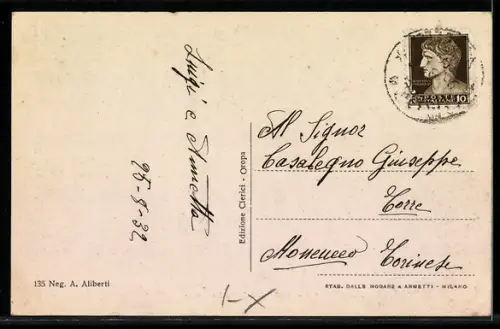 Luigi e Annetta
25-8-32
135 Neg. A. Aliberti
Edizione Clerici - Oropa
10
Al Signor
Casalegno Giuseppe
Torre
Torinese
STAB. DALLE NOGARE & ARMETTI - MILANO
I-X